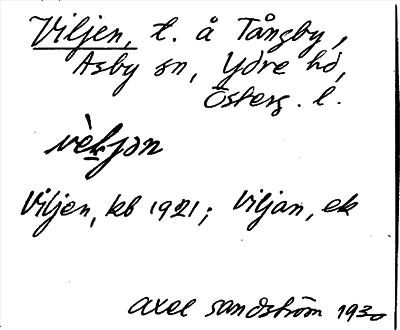 Viljen, t. å Tångby,
Asby sn, Ydre hd,
Österg. l.
Viljen, kb 1921; Viljan, ek
Axel Sandström 1930